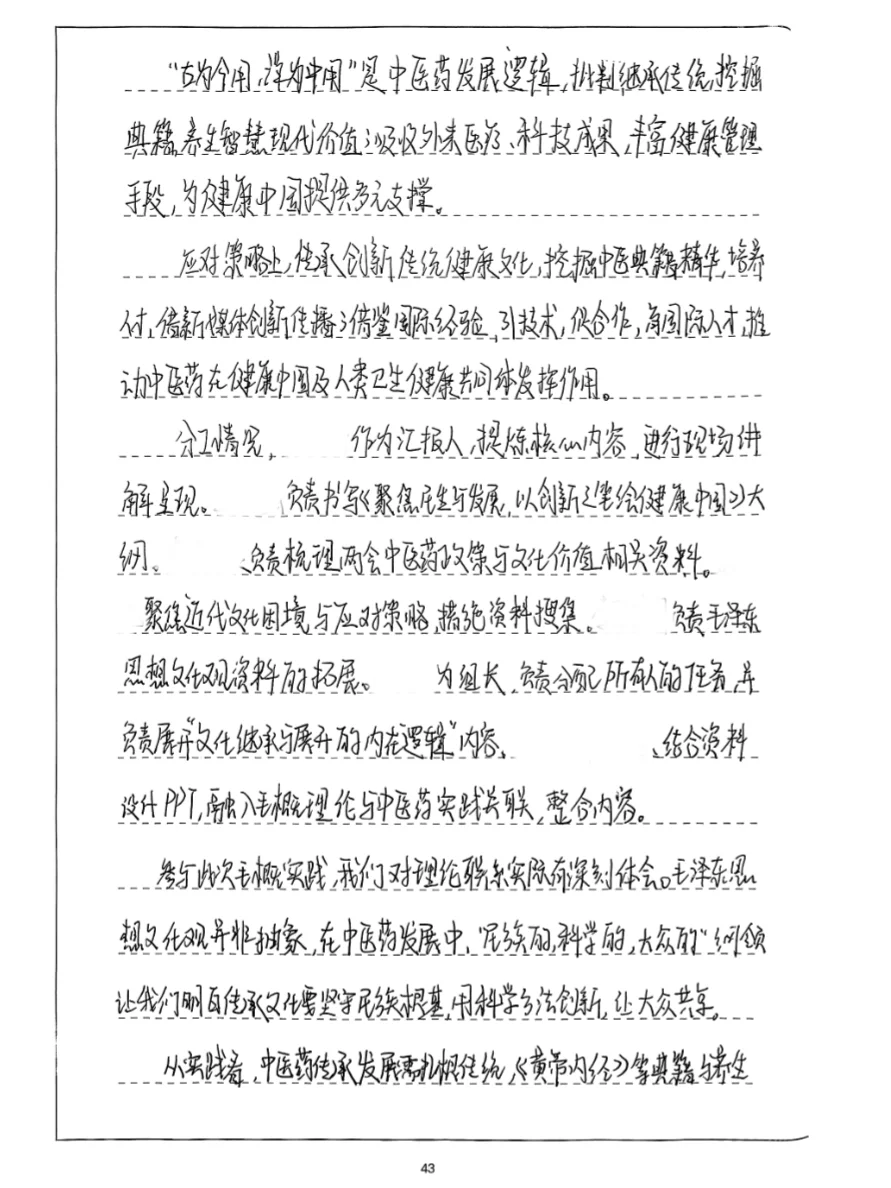 “古为今用,洋为中用”是中医药发展逻辑,批判继承传统,挖掘
典籍养生智慧现代价值;吸收外来医药、科技成果,丰富健康管理
手段,为健康中国提供多元支撑。
应对策略上,传承创新传统健康文化,挖掘中医典籍精华,培养
人才,借新媒体创新传播;借鉴国际经验,引技术,促合作,育国际人才,推
动中医药在健康中国及人类卫生健康共同体发挥作用。
分工情况, 作为汇报人,提炼核心内容,进行现场讲
解呈现。 负责书写《聚焦民生与发展,以创新之笔绘健康中国》大
纲。 、负责梳理两会中医药政策与文化价值相关资料。
聚焦近代文化困境与应对策略,措施资料搜集。 负责毛泽东
思想文化观资料的拓展。 为组长,负责分配所有人的任务,并
负责展开“文化继承与展开的内在逻辑”内容, 、结合资料
设计PPT,融入毛概理论与中医药实践关联,整合内容。
参与此次毛概实践,我们对理论联系实际有深刻体会。毛泽东思
想文化观并非抽象,在中医药发展中,“民族的,科学的,大众的”纲领
让我们明白传承文化要坚守民族根基,用科学方法创新,让大众共享。
从实践看,中医药传承发展需扎根传统,《黄帝内经》等典籍与养生
43